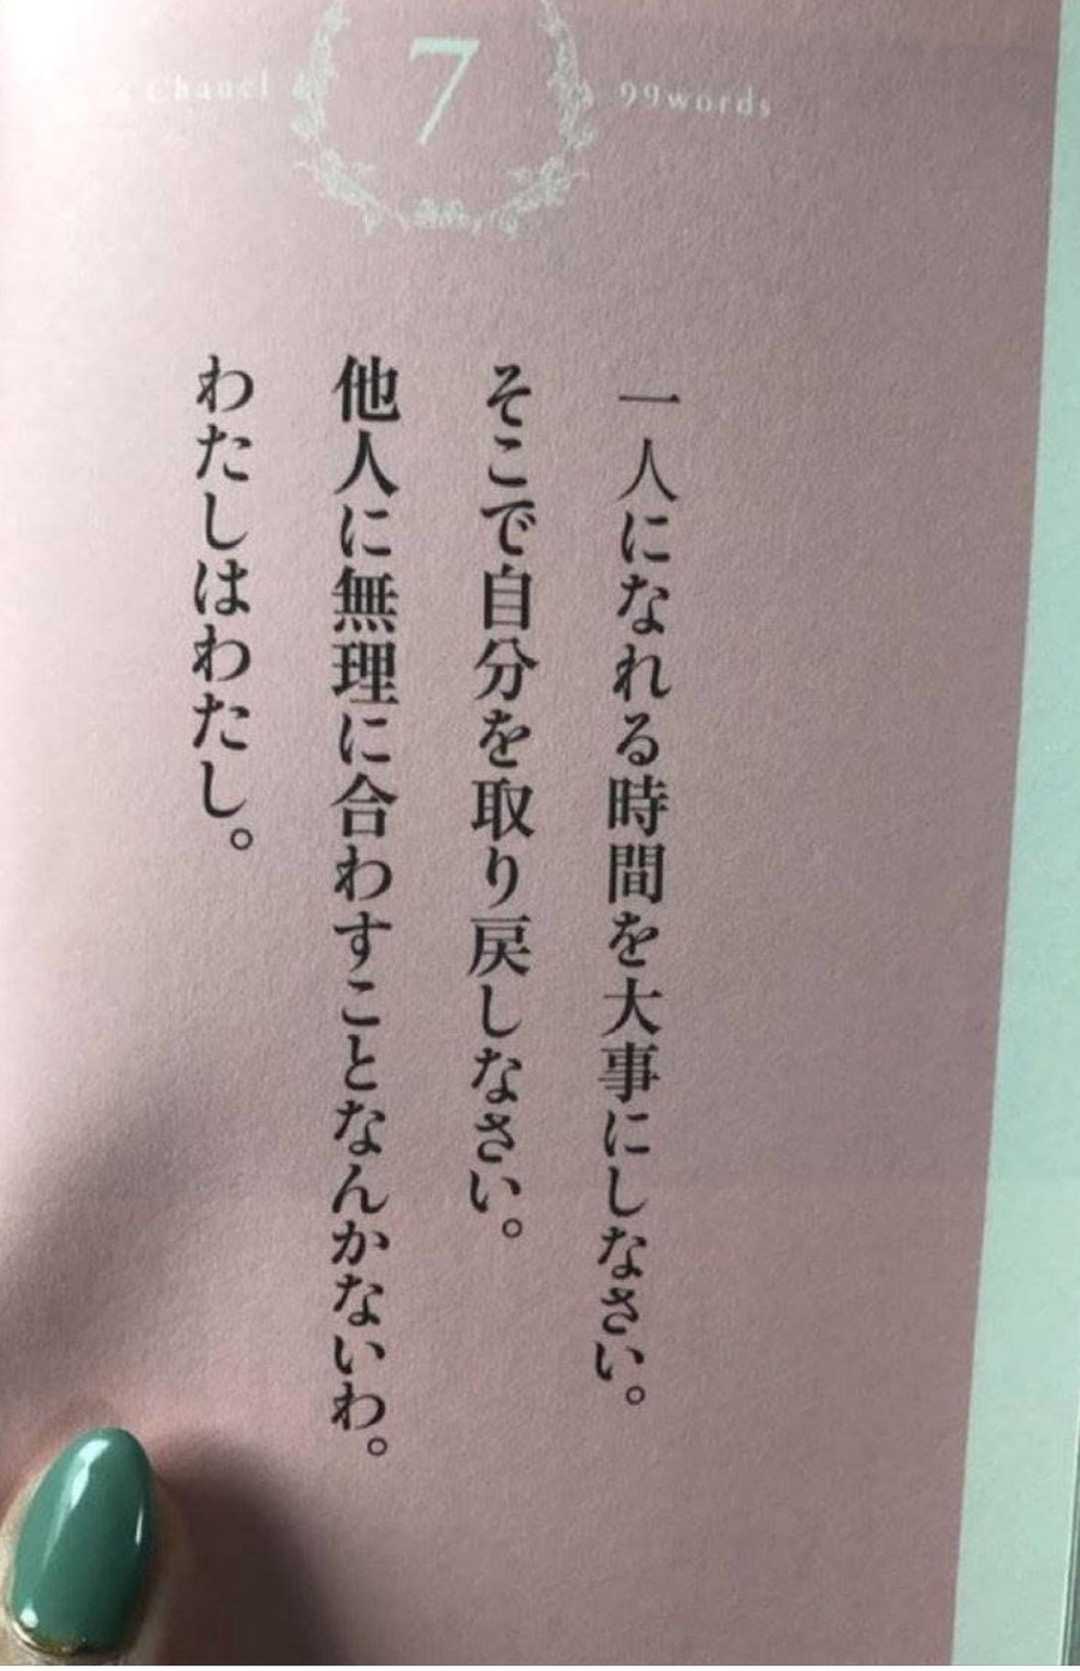 Chanel
7
99words
一人になれる時間を大事にしなさい。
そこで自分を取り戻しなさい。
他人に無理に合わすことなんかないわ。
わたしはわたし。